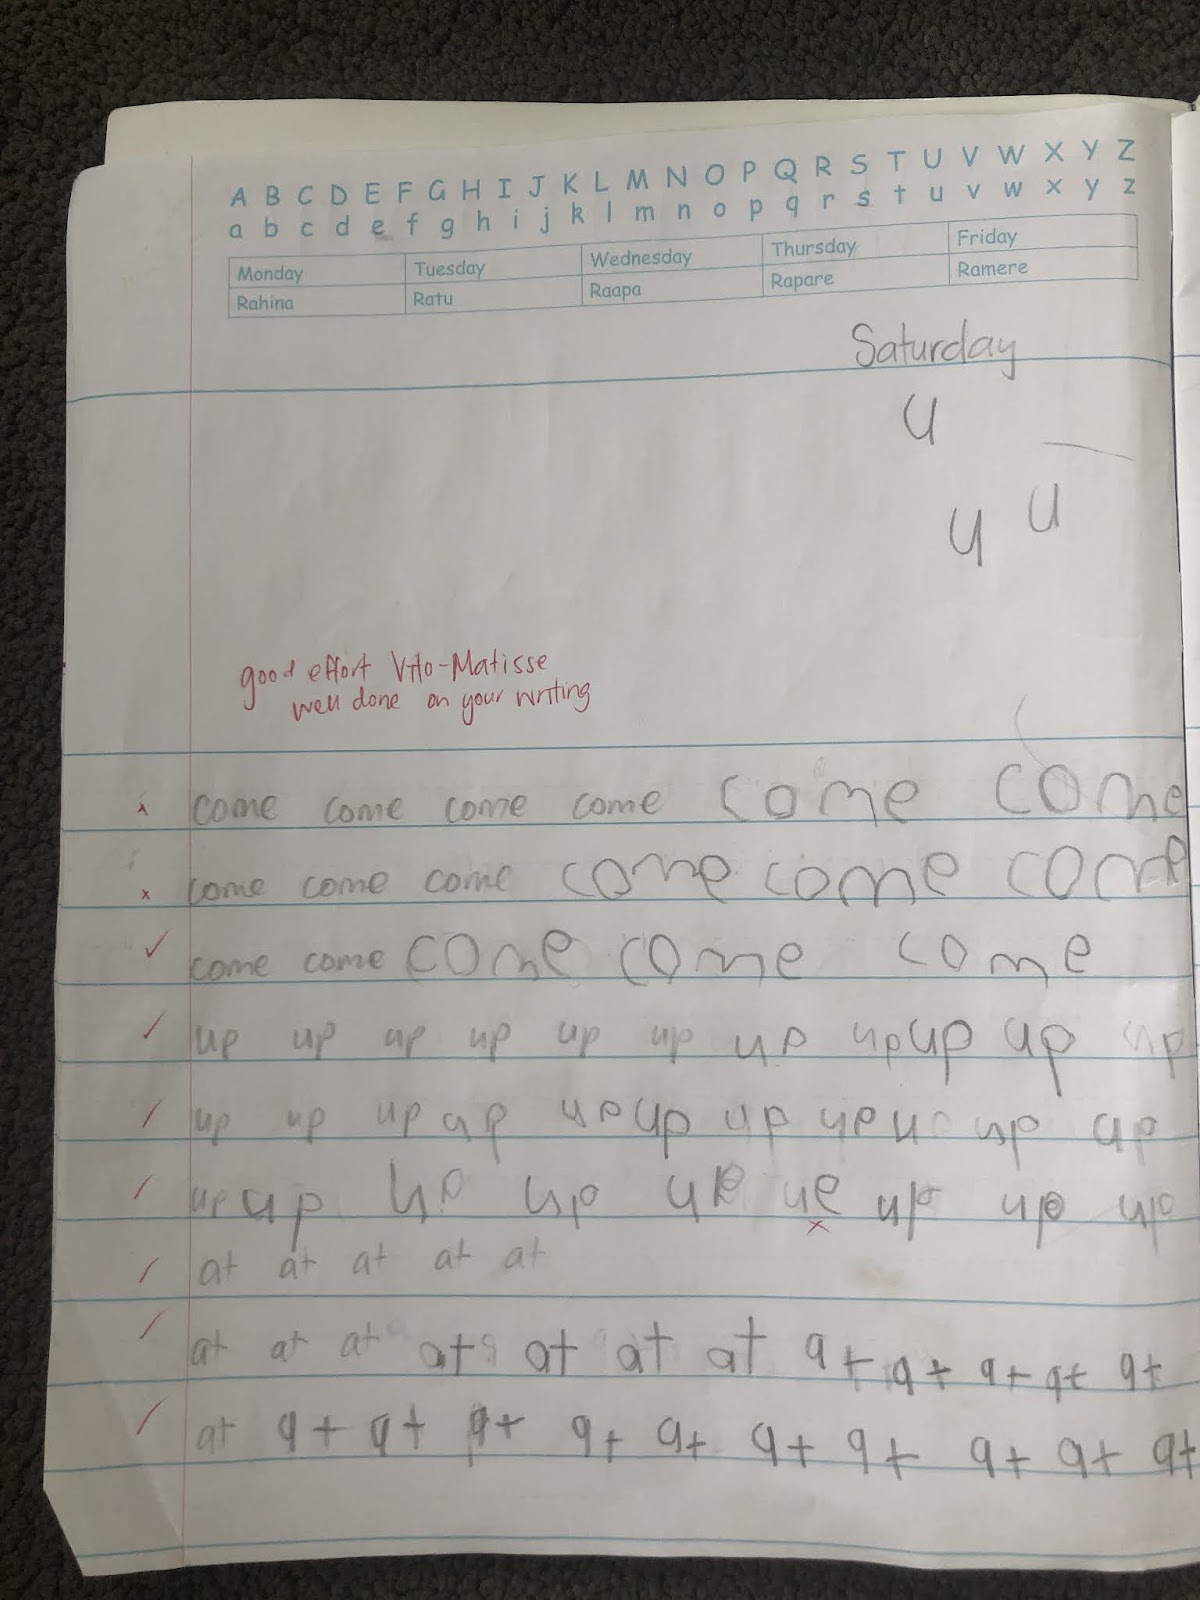 A B C D E F G H I J K L M N O P Q R S T U V W X Y Z
a b c d e f g h i j k l m n o p q r s t u v w x y z
Monday Tuesday Wednesday Thursday Friday
Rahina Ratu Raapa Rapare Ramere
Saturday
u
u u
good effort Vito-Matisse
well done on your writing
come come come come come come
come come come come come come
come come come come come
up up up up up up up up up up up
up up up up up up up up u up up
up up up up up ue up up up
at at at at at
at at at at at at at at at at at at
at at at at at at at at at at at